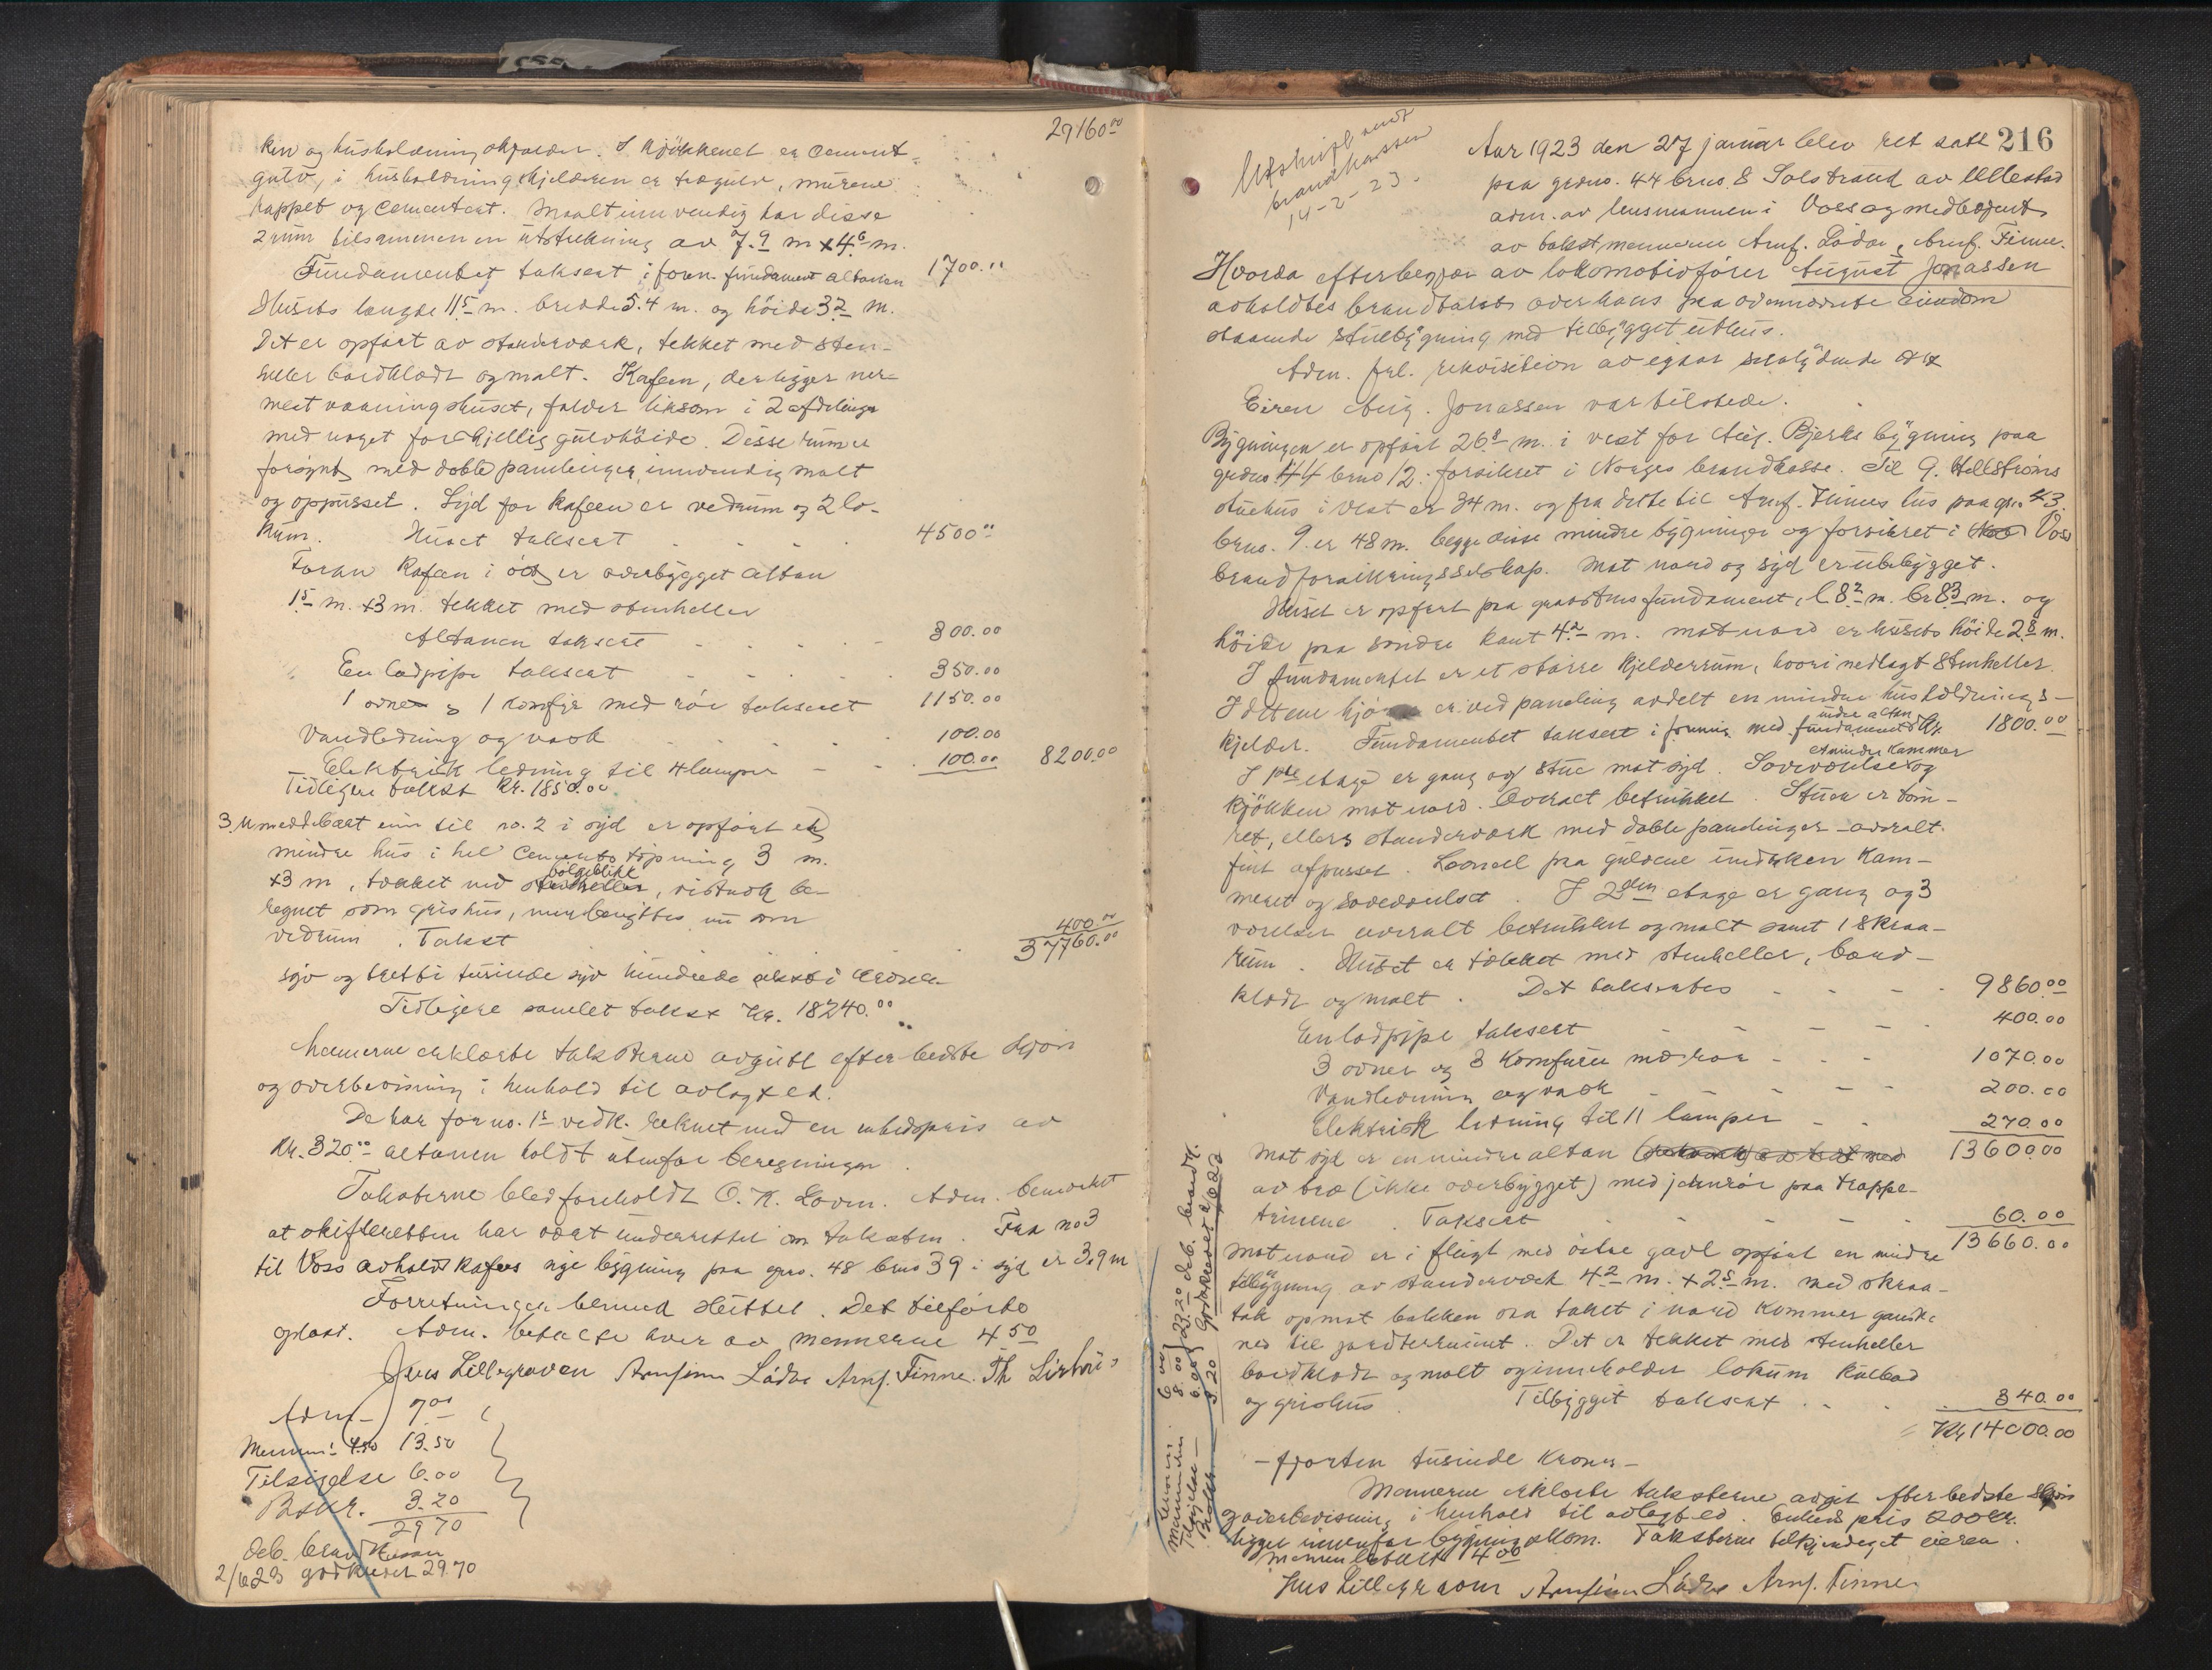 29160.00
ken og husholdningskjælder. I kjøkkenet er cement-
gulv, i husholdningskjelderen er trægulv, murene
rappet og cementert. Maalt innvendig har disse
2 rum tilsammen en utstrekning av 7.9 m x 4.6 m.
Fundamentet taksert i foren. fundament altanen 1700.00
Husets længde 11.5 m. bredde 5.4 m. og höide 3.2 m.
Det er opført av stenderværk, tekket med sten-
heller bordklædt og malt. Kafeen, der ligger nær-
mest vaaningshuset, falder liksom i 2 afdelinger
med noget forskjellig gulvhöide. Disse rum er
forsynt med doble panelinger, innvendig malt
og oppusset. Syd for kafeen er vedrum og 2 lo-
kum. Huset taksert 4500.00
Foran Kafeen i öst er overbygget altan
1.5 m. x 3 m. tekket med stenheller
Altanen taksert 300.00
En lodpipe taksert 350.00
1 ovner og 1 komfyr med rör taksert 1150.00
Vandledning og vask 100.00
Elektrisk ledning til 4 lamper 100.00 8200.00
Tidligere takst Kr. 1850.00
3. Umiddelbart inn til no. 2 i syd er opført et
mindre hus i hel cementstöpning 3 m.
bölgeblikk
x 3 m, tækket med stenheller, vistnok be-
regnet som grishus, men benyttes nu som
vedrum. Takst 400.00
37760.00
syv og tretti tusinde syv hundrede seksti kroner
Tidligere samlet takst Kr. 18240.00
Mennerne erklærte taksterne avgitt efter bedste skjön
og overbevisning i henhold til avlagt ed.
De har for no. 1 vedk. reknet med en enhedspris av
Kr. 320.00 altanen holdt utenfor beregningen.
Taksterne blev foreholdt O. K. Lovn. Adm. bemerket
at skifteretten har vært underrettet om taksten. Fra no 3
til Voss avholdskafes nye bygning paa grno. 48 brno 39 i syd er 3.9 m
Forretningen dermed sluttet. Det tilförte
oplæst. Adm. betalte hver av mennerne 4.50
Jens Lillegraven Arnfinn Lådve Arnf. Finne. Th Lirhus
Adm - 7.00
Mennene 4.50 13.50
Tilsigelse 6.00
Bskr. 3.20
29.70
deb. brandkassen
2/6 23 godkendt 29.70

216
Utskrift sendt
brandkassen
14-2-23.
Aar 1923 den 27 januar blev ret satt
paa grdno. 44 brno. 8 Solstrand av Ullestad
adm. av lensmannen i Voss og medbetjent
av takstmennene Arnf. Lådve, Arnf. Finne.
Hvorda efter begjær av lokomotivförer August Jonassen
avholdtes brandtakst over hans paa ovennævnte eiendom
staaende stuebygning med tilbygget uthus.
Adm. frl. rekvisition av egaar saalydende etc
Eieren Aug. Jonassen var tilstede.
Bygningen er opført 26.8 m. i vest for Aug. Bjerks bygning paa
grdno. 44 brno 12. forsikret i Norges brandkasse. Til G. Hellströms
stuehus i vest er 34 m. og fra dette til Arnf. Finnes hus paa gr. 43.
brno. 9. er 48 m. begge disse mindre bygninger og forsikret i Voss
brandforsikringsselskap. Mot nord og syd er ubebygget.
Huset er opført paa graastensfundament, l. 8.2 m. br. 8.3 m. og
höide paa söndre kant 4.2 m. mot nord er husets höide 2.8 m.
I fundamentet er et större kjelderrum, hvori nedlagt stenheller.
I dettene hjö er ved paneling avdelt en mindre husholdnings-
under altan
kjelder. Fundamentet taksert i forening med fundament Kr. 1800.00
et mindre kammer
I 1ste etage er gang og stue mot syd. Soveværelse og
kjökken mot nord. Overalt betrukket. Stuen er töm-
ret, ellers stenderværk med doble panelinger overalt
fint afpusset. Linoleum paa gulvene undtaken kam-
meret og soveværelset. I 2den etage er gang og 3
værelser overalt betrukket og malt samt 1 skraa-
rum. Huset er tækket med stenheller, bord-
klædt og malt. Det taksertes 9860.00
En lodpipe taksert 400.00
3 ovner og 3 komfurer med rör 1070.00
Vandledning og vask 200.00
Elektrisk ledning til 11 lamper 270.00
13600.00
Mot syd er en mindre altan
av træ (ikke overbygget) med jernrör paa trappe-
trinene. Taksert 60.00
13660.00
Mot nord er i flugt med östre gavl opfört en mindre
tilbygning av stenderværk 4.2 m. x 2.5 m. med skraa-
tak opmot bakken saa taket i nord kommer ganske
ned til jordterrænet. Det er tekket med stenheller
bordklædt og malt og inneholder lokum kulbod
og grishus. Tilbygget taksert 340.00
= Kr 14000.00
- fjorten tusinde kroner -
Mennerne erklærte taksterne avgit efter bedste skjön
og overbevisning i henhold til avlagt ed. Enheds pris 200 Kr.
ligger innenfor bygningsklom. Taksterne tilkjendegit eieren.
mennene betalt 4.00
Jens Lillegraven Arnfinn Lådve Arnf. Finne
Mennene 8.00
Tilsigelse 6.00
Bskr. 3.20
23.20 deb. brandk.